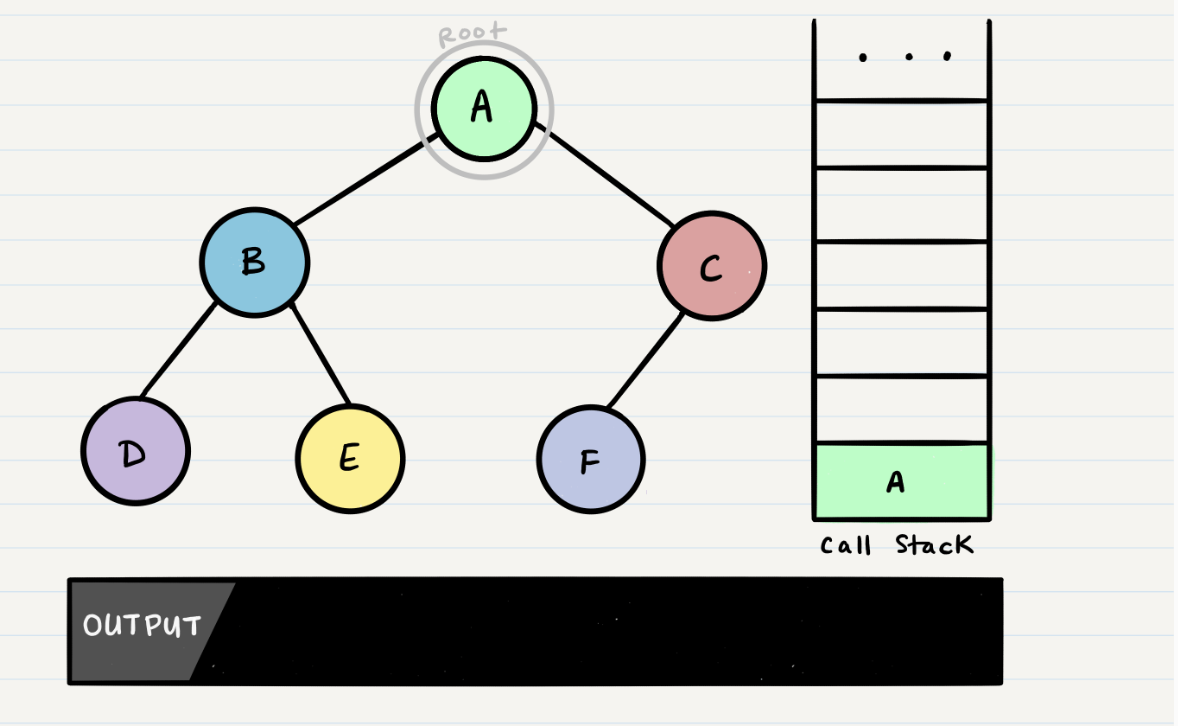 Root
A
B
C
D
E
F
. . .
A
Call Stack
OUTPUT